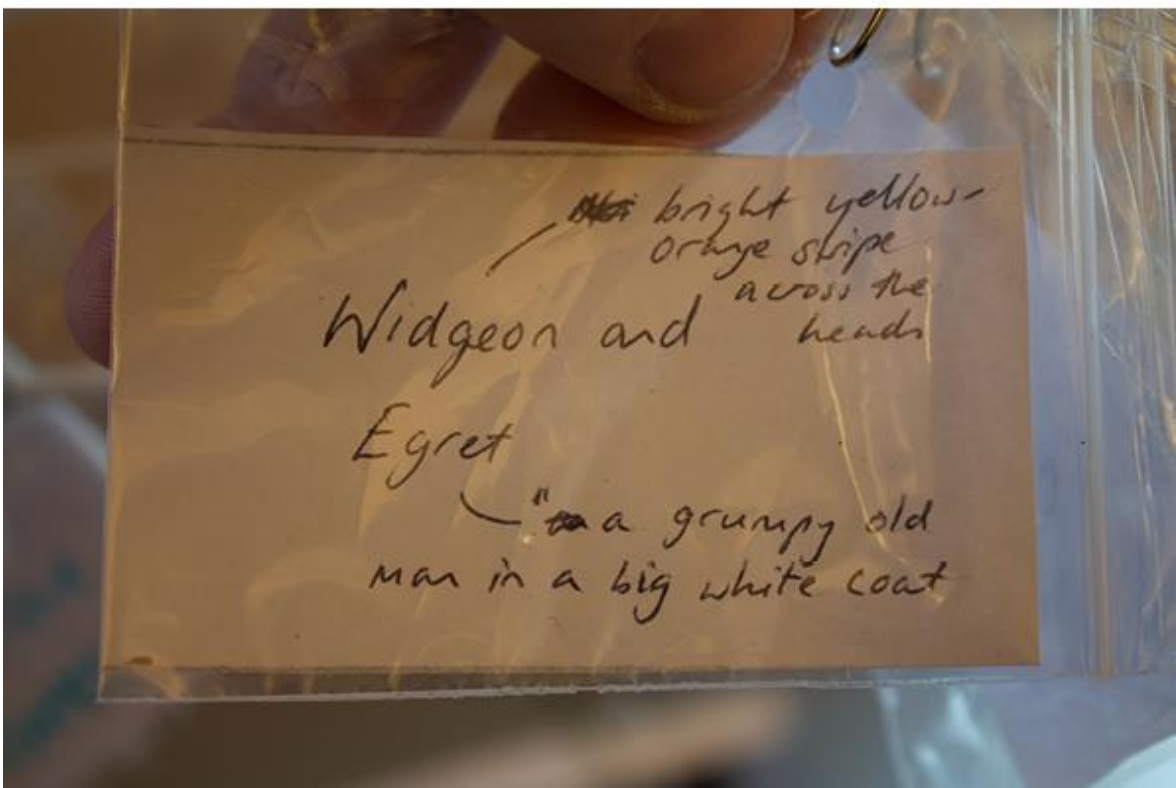 bright yellow-
orange stripe
across the
heads
Widgeon and
Egret
"a grumpy old
man in a big white coat